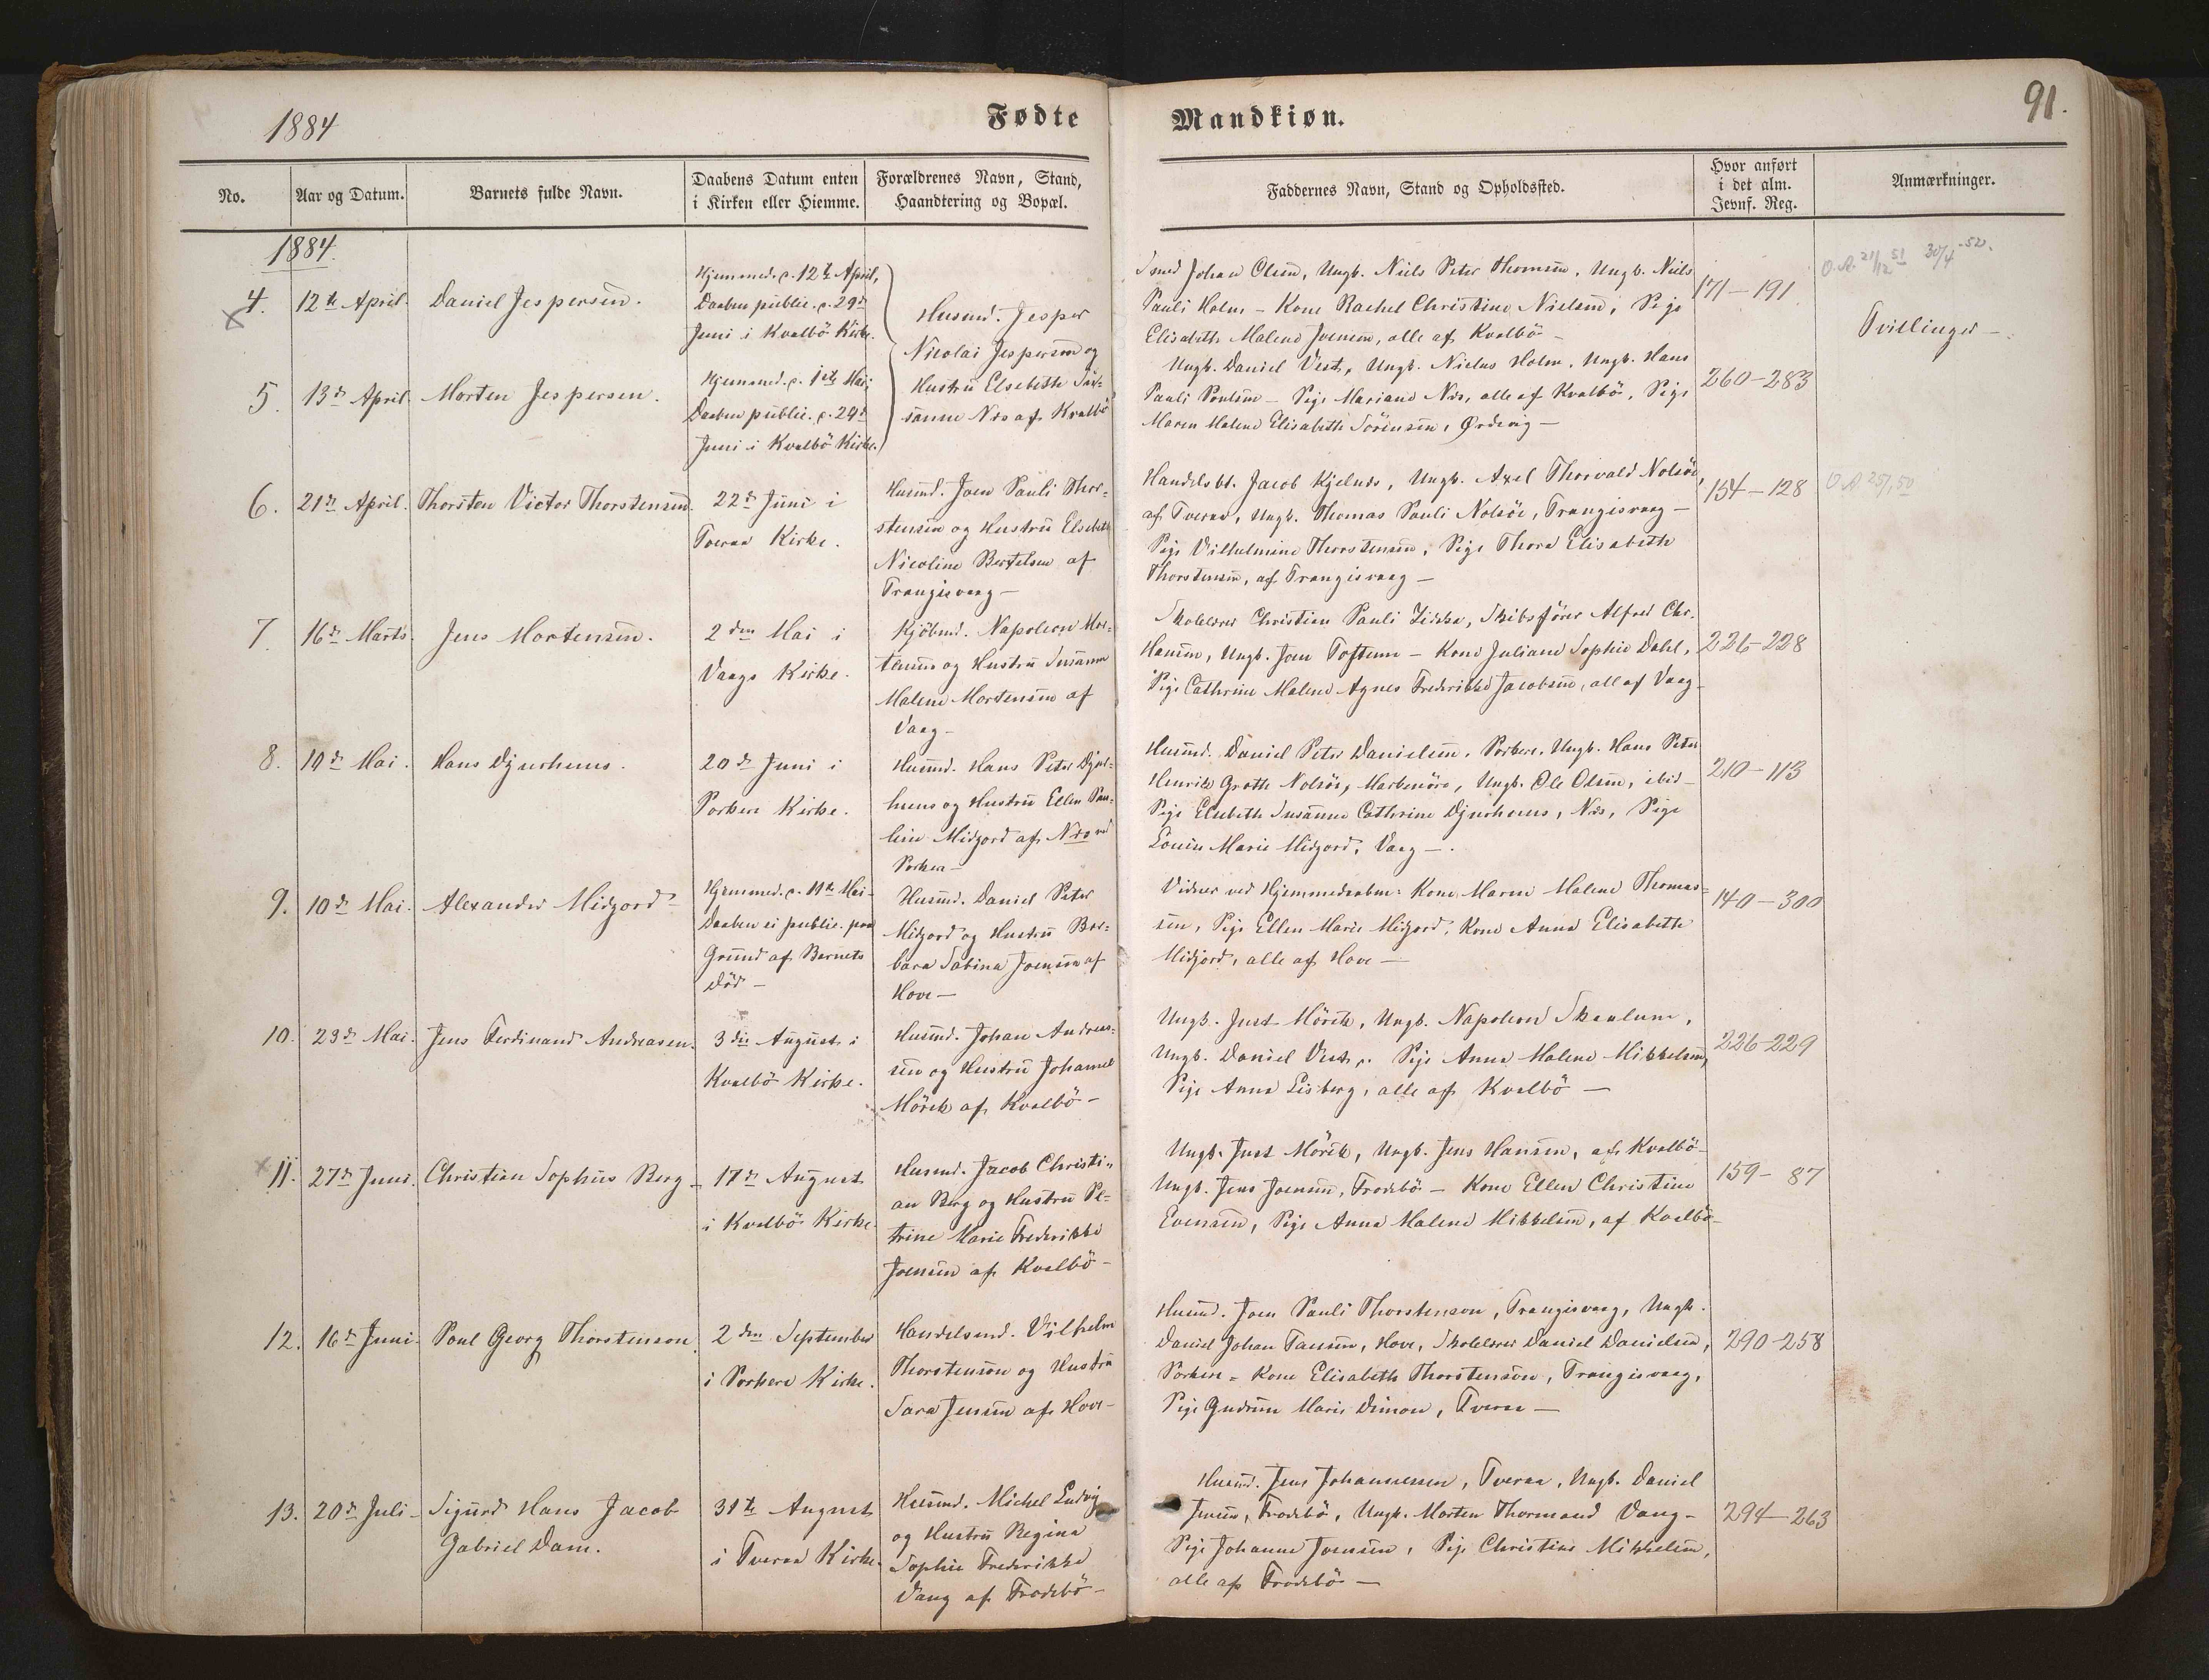 1884
Fødte
Mandkiøn.
91.
No.
Aar og Datum.
Barnets fulde Navn.
Daabens Datum enten
i Kirken eller Hiemme.
Forældrenes Navn, Stand,
Haandtering og Bopæl.
Faddernes Navn, Stand og Opholdssted.
Hvor anført
i det alm.
Jevnf. Reg.
Anmærkninger.
1884.
4.
12te April.
Daniel Jespersen.
Hjemmed. d. 12te April,
Daaben public. d. 29de
Juni i Kvalbö Kirke.
Husmd. Jesper
Nicolai Jespersen og
Hustru Elsebeth Su-
sanne Næs af Kvalbö
Smed Johan Olsen, Ungk. Niels Peter Thomsen, Ungk. Niels
Pauli Holm - Kone Rachel Christine Nielsen, Pige
Elisabeth Malene Joensen, alle af Kvalbö -
171-191
O.A. 21/12 51 30/4 -52.
Tvillinger -
5.
13de April.
Morten Jespersen.
Hjemmed. d. 1ste Mai;
Daaben public. d. 29de
Juni i Kvalbö Kirke.
Ungk. Daniel Vest, Ungk. Niclas Holm, Ungk. Hans
Pauli Poulsen - Pige Mariane Næs, alle af Kvalbö, Pige
Maren Malene Elisabeth Sörensen, Ørdevig -
260-283
6.
21de April.
Thorsten Victor Thorstensen.
22de Juni i
Tveraa Kirke.
Husmd. Joen Pauli Thor-
stensen og Hustru Elsebeth
Nicoline Bertelsen af
Trangisvaag -
Handelsbt. Jacob Kjelnæs, Ungk. Axel Thorvald Nolsöe,
af Tveraa, Ungk. Thomas Pauli Nolsöe, Trangisvaag -
Pige Vilhelmine Thorstensen, Pige Thora Elisabeth
Thorstensen, af Trangisvaag -
154-128
O.A. 25/1 50
7.
16de Marts.
Jens Mortensen.
2den Mai i
Vaags Kirke.
Kjöbmd. Napoleon Mor-
tensen og Hustru Susanne
Malene Mortensen af
Vaag -
Skolelærer Christian Pauli Skibsfører Alfred Chr.
Hansen, Ungk. Joen Toftum - Kone Juliane Sophie Dahl,
Pige Cathrine Malene Agnes Frederikke Jacobsen, alle af Vaag -
226-228
8.
10de Mai.
Hans Djurhuus.
20de Juni i
Porkere Kirke.
Husmd. Hans Peter Djur-
huus og Hustru Ellen Pau-
line Midgord af Næs ved
Porkere -
Husmd. Daniel Peter Danielsen, Porkere, Ungk. Hans Peter
Henrik Groth Nolsöe, Ungk. Ole Olsen, ibid -
Pige Elsebeth Susanne Cathrine Djurhuus, Næs, Pige
Louise Marie Midgord, Vaag -.
210-113
9.
10de Mai.
Alexander Midgord -
Hjemmed. d. 11te Mai -
Daaben ei public. paa
Grund af Barnets
Död -
Husmd. Daniel Peter
Midgord og Hustru Bar-
bara Sabina Joensen af
Hove -
Vidner ved Hjemmedaaben: Kone Maren Malene Thomas-
sen, Pige Ellen Marie Midgord, Kone Anna Elisabeth
Midjord, alle af Hove -
140-300
10.
23de Mai.
Jens Ferdinand Andreasen.
3die August i
Kvalbö Kirke.
Husmd. Johan Andreas-
sen og Hustru Johanne
Mörck af Kvalbö -
Ungk. Just Mörch, Ungk. Napoleon Skaalum,
Ungk. Daniel Vest, - Pige Anna Malene Mikkelsen,
Pige Anna Lisberg, alle af Kvalbö -
226-229
11.
27de Juni.
Christian Sophus Berg -
17de August
i Kvalbö Kirke
Husmd. Jacob Christi-
an Berg og Hustru Pe-
trine Marie Frederikke
Joensen af Kvalbö -
Ungk. Just Mörck, Ungk. Jens Hansen, af Kvalbö -
Ungk. Jens Joensen, Frodebö - Kone Ellen Christine
Evensen, Pige Anna Malene Mikkelsen, af Kvalbö -
159-87
12.
16de Juni.
Poul Georg Thorstenson.
2den September
i Porkere Kirke.
Handelsmd. Vilhelm
Thorstenson og Hustru
Sara Jensen af Hove -
Husmd. Joen Pauli Thorstenson, Trangisvaag, Ungk.
Daniel Johan Tausen, Hove, Skolelærer Daniel Danielsen,
Porkere - Kone Elisabeth Thorstenson, Trangisvaag,
Pige Gudrun Marie Dimon, Tveraa -
290-258
13.
20de Juli -
Sigurd Hans Jacob
Gabriel Dam.
31te August
i Tveraa Kirke.
Husmd. Michel Ludvig
og Hustru Regina
Sophie Frederikke
Vang af Frodebö -
Husmd. Jens Johannessen, Tveraa, Ungk. Daniel
Jensen, Frodebö, Ungk. Morten Thormand Vang -
Pige Johanne Joensen, Pige Christine Mikkelsen,
alle af Frodebö -
294-263